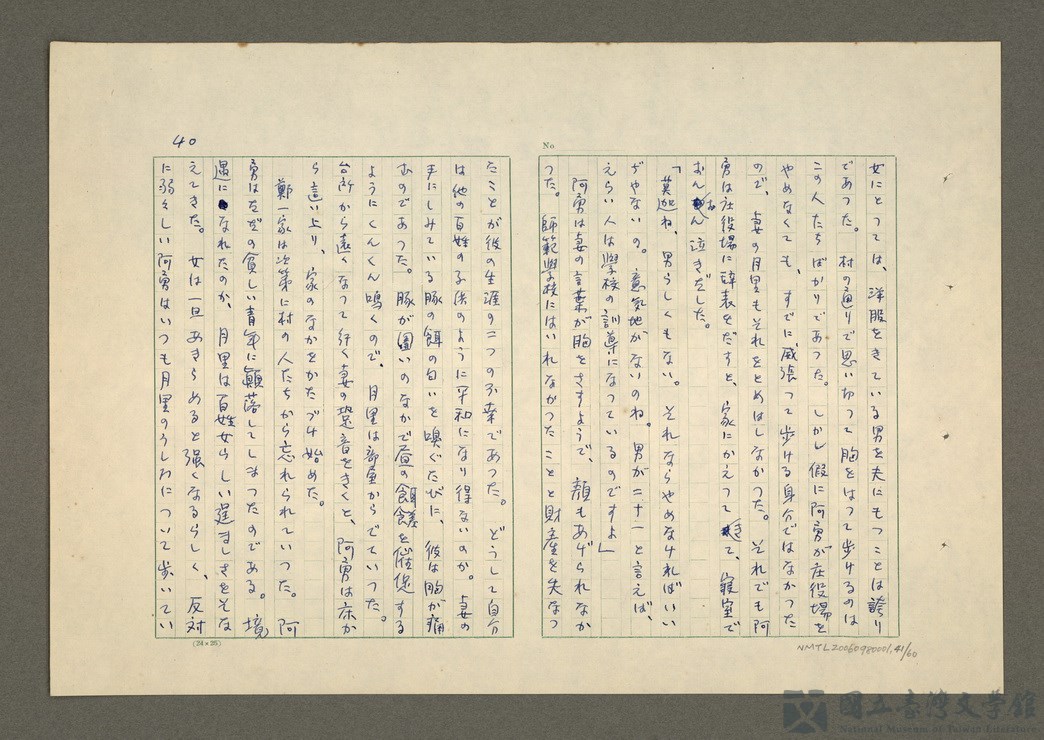 40
No
女にとっては、洋服をきている男を夫にもつことは誇り
であった。村の通りで思い切って胸をはって歩けるのは
この人たちばかりであった。しかし假に阿勇が庄役場を
やめなくても、すでに威張って歩ける身分ではなかった
ので、妻の月里もそれをとめはしなかった。それでも阿
勇は庄役場に辞表をだすと、家にかえってきて、寝室で
おんおん泣きだした。
「莫迦ね、男らしくもない。それならやめなければいい
ぢやないの。意気地がないのね。男が二十一と言えば、
えらい人は學校の訓導になっているのですよ」
阿勇は妻の言葉が胸をさすようで、顔もあげられなか
った。師範學校にはいれなかったことと財産を失なっ
たことが彼の生涯の二つの不幸であった。どうして自分
は他の百姓の子供のように平和になり得ないのか。妻の
手にしみている豚の餌の匂いを嗅ぐたびに、彼は胸が痛
むのであった。豚が囲いのなかで昼の餌を催促する
ようにくんくん鳴くので、月里は部屋からでていった。
台所から遠くなって行く妻の跫音をきくと、阿勇は床か
ら這い上り、家のなかをかたづけ始めた。
鄭一家は次第に村の人たちから忘れられていった。阿
勇はただの貧しい青年に顚落してしまったのである。境
遇になれたのか、月里は百姓女らしい逞ましさをそな
えてきた。女は一旦あきらめると強くなるらしく、反対
に弱々しい阿勇はいつも月里のうしろについて歩いてい
(24×25)
NMTL20060980001,41/60
國立臺灣文學館
National Museum of Taiwan Literature